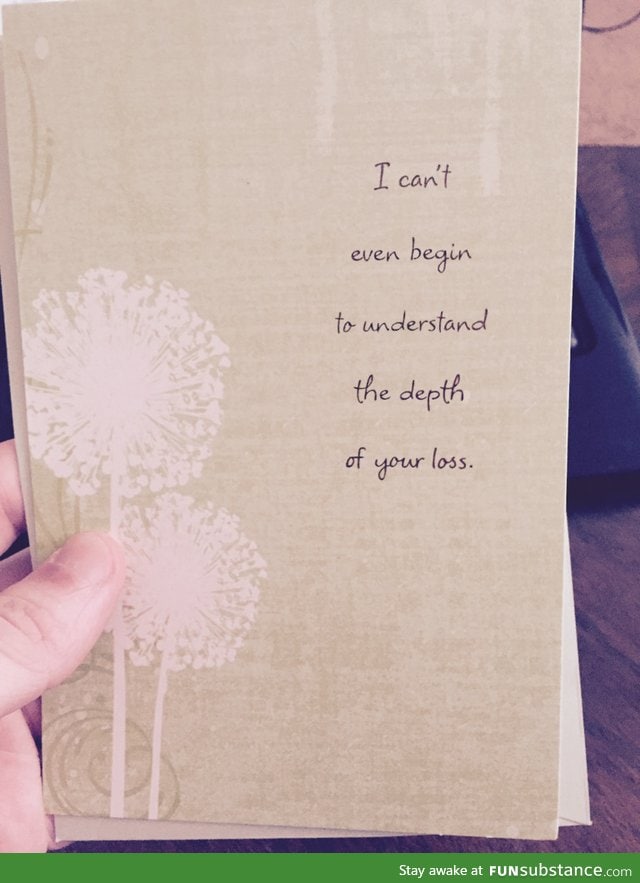 I can't
even begin
to understand
the depth
of your loss.
Stay awake at FUNsubstance.com